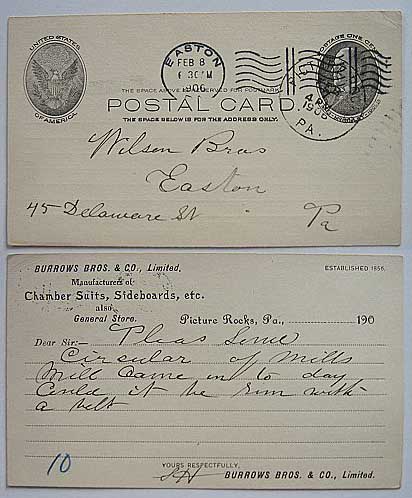 UNITED STATES
OF AMERICA
EASTON
FEB 8
6-30PM
1906
PICTURE
4 PM
1906
PA.
POSTAGE ONE CENT
THE SPACE ABOVE RESERVED FOR POSTMARK
POSTAL CARD.
THE SPACE BELOW IS FOR THE ADDRESS ONLY.
Wilson Bros
Easton
45 Delaware St Pa
BURROWS BROS. & CO., Limited,
ESTABLISHED 1856.
Manufacturers of
Chamber Suits, Sideboards, etc.
also
General Store.
Picture Rocks, Pa., 190
Dear Sir:- Pleas Send
Circular of Mills
Mill Came in to day
Could it be run with
a belt
10
YOURS RESPECTFULLY,
BURROWS BROS. & CO., Limited.